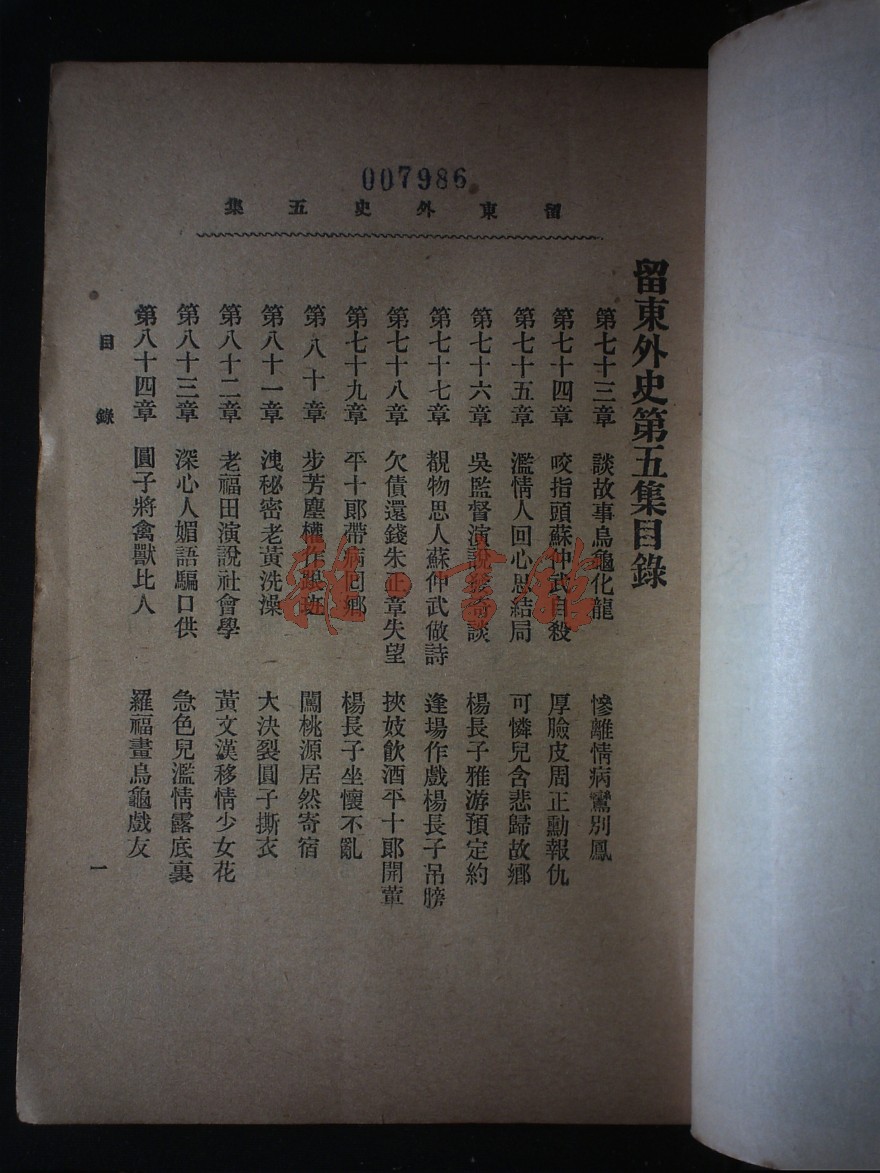 007986
留東外史五集
留東外史第五集目錄
第七十三章 談故事烏龜化龍 慘離情病鸞別鳳
第七十四章 咬指頭蘇仲武自殺 厚臉皮周正勳報仇
第七十五章 濫情人回心思結局 可憐兒含悲歸故鄉
第七十六章 吳監督演說發奇談 楊長子雅游預定約
第七十七章 覩物思人蘇仲武做詩 逢場作戲楊長子吊膀
第七十八章 欠債還錢朱正章失望 挾妓飲酒平十郎開葷
第七十九章 平十郎帶病回鄉 楊長子坐懷不亂
第八十章 步芳塵權作跟班 闖桃源居然寄宿
第八十一章 洩秘密老黃洗澡 大決裂圓子撕衣
第八十二章 老福田演說社會學 黃文漢移情少女花
第八十三章 深心人媚語騙口供 急色兒濫情露底裏
第八十四章 圓子將禽獸比人 羅福畫烏龜戲友
目錄
一
雜書館